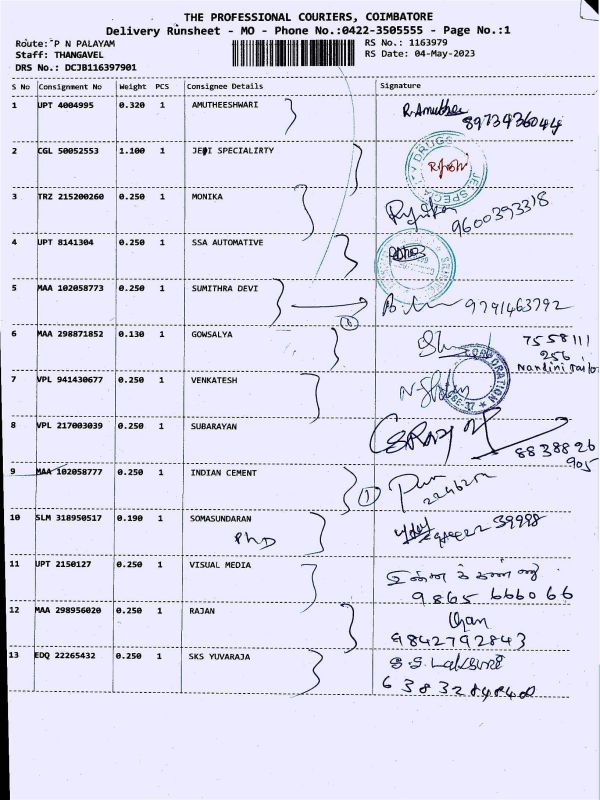 THE PROFESSIONAL COURIERS, COIMBATORE
Delivery Runsheet - MO - Phone No.:0422-3505555 - Page No.:1
Route: P N PALAYAM RS No.: 1163979
Staff: THANGAVEL RS Date: 04-May-2023
DRS No.: DCJB116397901
S No Consignment No Weight PCS Consignee Details Signature
1 UPT 4004995 0.320 1 AMUTHEESHWARI R.Amutha
8973436044
2 CGL 50052553 1.100 1 JEJI SPECIALIRTY DRUGS
3 TRZ 215200260 0.250 1 MONIKA
9600393318
4 UPT 8141304 0.250 1 SSA AUTOMATIVE
5 MAA 102058773 0.250 1 SUMITHRA DEVI 9791463792
6 MAA 298871852 0.130 1 GOWSALYA 7558111
256
Nandini Tailo
7 VPL 941430677 0.250 1 VENKATESH CORPORATION
8 VPL 217003039 0.250 1 SUBARAYAN
8838826
905
9 MAA 102058777 0.250 1 INDIAN CEMENT 1
10 SLM 318950517 0.190 1 SOMASUNDARAN 39998
PhD
11 UPT 2150127 0.250 1 VISUAL MEDIA
9865 666066
12 MAA 298956020 0.250 1 RAJAN
9842792843
13 EDQ 22265432 0.250 1 SKS YUVARAJA